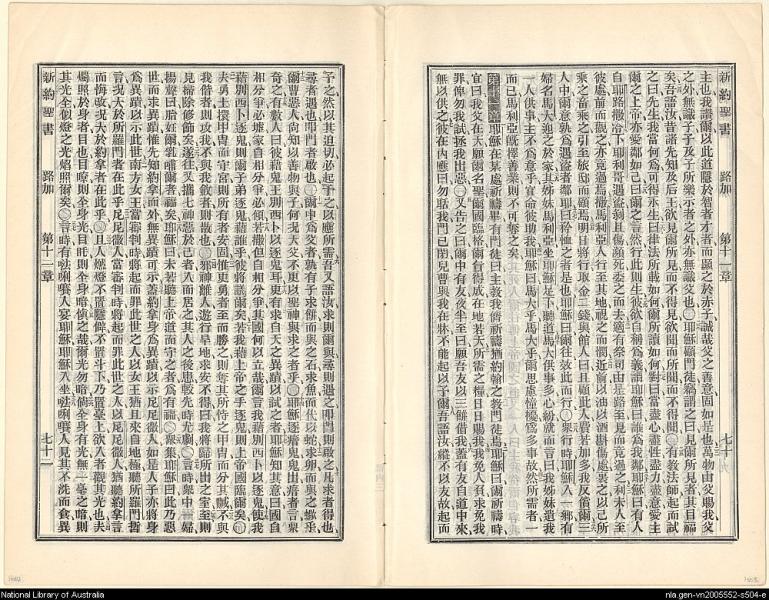 新約聖書 路加 第十一章 七十一
主也我讚爾以此道隱於智者才者而顯之於赤子誠哉父之善意固如是也萬物由父賜我父
之外無識子子及子所樂示者之外亦無識父也〇耶穌顧門徒竊謂之曰見爾所見者其目福
矣吾語汝昔諸先知及后王欲見爾所見而不得見欲聞爾所聞而不得聞〇有敎法師起而試
之曰先生我當何為可得永生曰律法所載如何爾所讀如何對曰當盡心盡性盡力盡意愛主
爾之上帝亦愛鄰如己曰爾之言然行此則生彼欲自稱為義謂耶穌曰誰為我鄰耶穌曰有人
自耶路撒冷下耶利哥遇盜剝且傷瀕死委之而去適有祭司由是路至見而竟過之利未人至
彼處前而觀之亦竟過焉撒馬利亞人行至其地視之而憫近前以油以酒斟傷處裹之以己所
乘之畜乘之引至旅邸而顧焉明日將行以金二錢與館人曰且顧此人費若加多我反償爾三
人中爾意孰為遇盜者鄰耶曰矜恤之者是也耶穌曰爾往效此而行〇眾行時耶穌入一鄉有
婦名馬大迎之於家其姊妹馬利亞坐耶穌足下聽道馬大供事多心紛就而言曰我姊妹遺我
一人供事主不為意乎宜命彼助我耶穌曰馬大乎馬大乎爾思慮煩擾為多事故然所需者一
而已馬利亞既擇善業則不可奪之矣
耶穌在某處祈禱畢有門徒曰主敎我儕祈禱猶約翰之敎門徒焉耶穌曰爾祈禱時
宜曰我父在天願爾名聖爾國臨格爾旨得成在地若天所需之糧日日賜我我免人負求免我
罪俾勿我試拯我出惡〇又告之曰爾中有友夜半至曰願吾友以三餅借我蓋有友自道中來
無以供之彼在內應曰勿聒我門已閉兒曹與我在牀不能起以予爾吾語汝縱不以友故起而
予之然以其迫切必起予之以應所需吾又語汝求則爾與尋則遇叩門則啟之凡求者得也
尋者遇也叩門者啟也〇爾中為父者孰有子求餅而與之石求魚而代以蛇求卵而與之蠍乎
爾曹惡人尚知以善物與子何況天父不更以聖神與求之者乎〇耶穌逐瘖鬼鬼出瘖者言眾
奇之有數人曰彼藉鬼王別西卜以逐鬼耳更有求自天之異蹟以試之者耶穌知其意曰國自
相分爭必墟家自相分爭必傾若撒但自相分爭其國何以立哉爾言我藉別西卜以逐鬼使我
藉別西卜逐鬼則爾子弟逐鬼藉誰乎彼將議爾矣若我藉上帝之手逐鬼則上帝國臨爾矣〇
夫勇士擐甲冑而守宮則所有者安固惟更勇者至而勝之則奪其所恃之甲冑而分其贓不與
我偕者則攻我不與我斂者則散也〇邪神離人遊行旱地求安不得曰我將歸所出之室至則
見掃除修飾矣遂往又攜七神惡於己者入而居之其人之後患較先時尤劇〇言時眾中一婦
揚聲曰胎妊爾乳哺爾者福矣耶穌曰未若聽上帝道而守之者為有福〇眾集耶穌曰此乃惡
世而求異蹟惟先知約拿而外無異蹟可示蓋約拿身為異蹟以示尼尼微人如是人子亦將身
為異蹟以示此世南方女王當審判時將起而罪此世之人以女王猶且來自地極聽所羅門哲
言況大於所羅門者在此乎尼尼微人當審判時將起而罪此世之人以尼尼微人猶聽約拿言
而悔改況大於約拿者在此乎〇且人燃燈不置隱僻不置斗下乃置臺上欲入者觀其光也夫
燭照於身者目也目瞭則全身光目眊則全身暗慎之哉爾光勿暗倘全身有光無一毫之暗則
其光全似燈之光焰照爾矣〇言時有𠵽唎㘔人宴耶穌耶穌入坐𠵽唎㘔人見其不洗而食異
新約聖書 路加 第十一章 七十二
National Library of Australia
nla.gen-vn2005552-s504-e